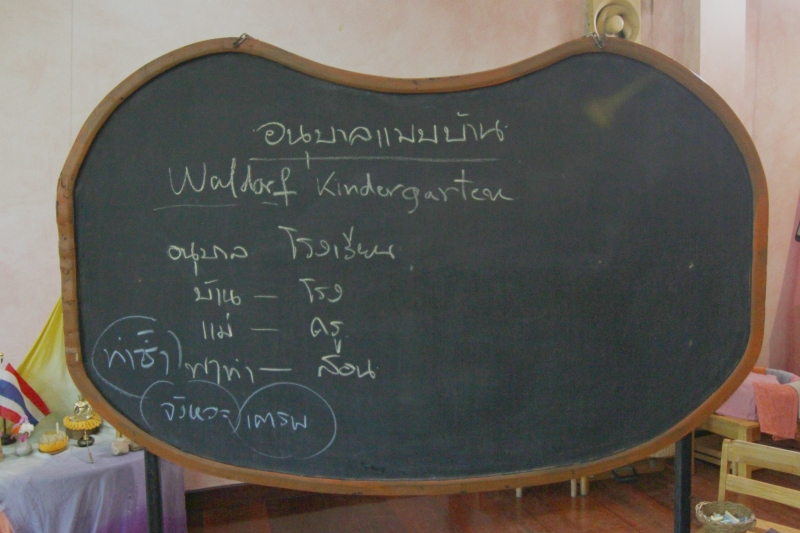 อนุบาลแบบบ้าน
Waldorf Kindergarten
อนุบาล โรงเรียน
บ้าน — โรง
แม่ — ครู
ทำซ้ำ พาทำ — สอน
จังหวะ เคารพ